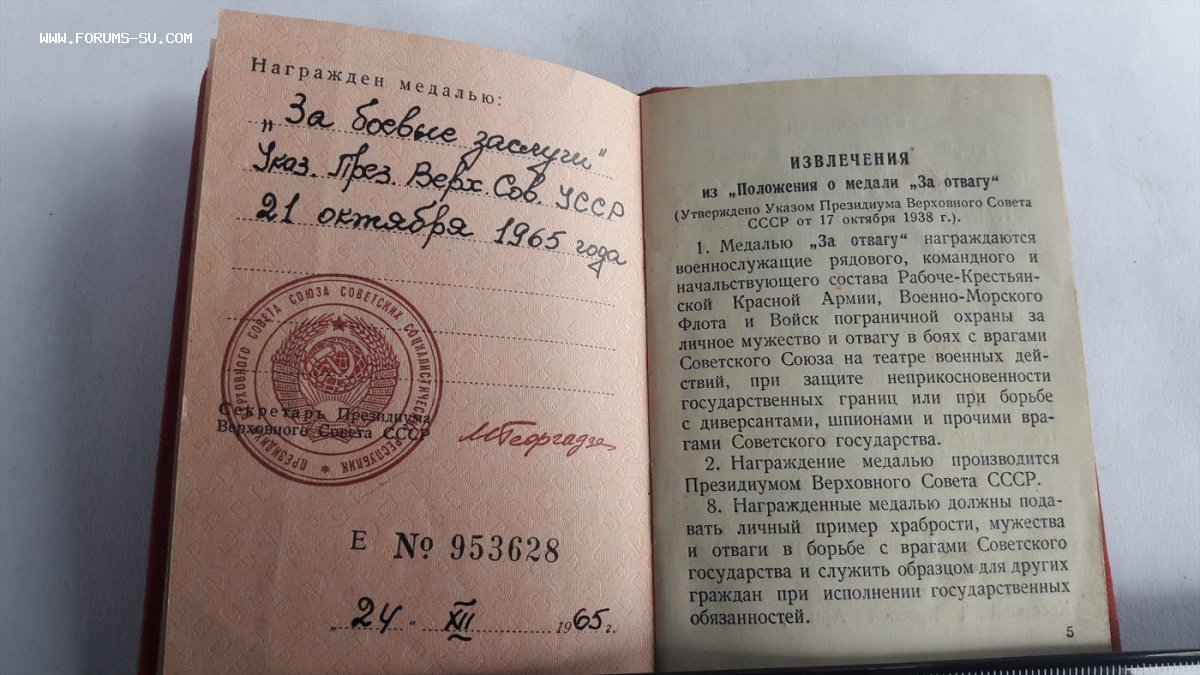 WWW.FORUMS-SU.COM
Награжден медалью:
„За боевые заслуги"
Указ. През. Верх. Сов. УССР
21 октября 1965 года
ПРЕЗИДИУМ ВЕРХОВНОГО СОВЕТА СОЮЗА СОВЕТСКИХ СОЦИАЛИСТИЧЕСКИХ РЕСПУБЛИК *
Секретарь Президиума
Верховного Совета СССР
МГеоргадзе
Е № 953628
„24" XII 1965 г.
ИЗВЛЕЧЕНИЯ
из „Положения о медали „За отвагу"
(Утверждено Указом Президиума Верховного Совета
СССР от 17 октября 1938 г.).
1. Медалью „За отвагу" награждаются
военнослужащие рядового, командного и
начальствующего состава Рабоче-Крестьян-
ской Красной Армии, Военно-Морского
Флота и Войск пограничной охраны за
личное мужество и отвагу в боях с врагами
Советского Союза на театре военных дей-
ствий, при защите неприкосновенности
государственных границ или при борьбе
с диверсантами, шпионами и прочими вра-
гами Советского государства.
2. Награждение медалью производится
Президиумом Верховного Совета СССР.
8. Награжденные медалью должны пода-
вать личный пример храбрости, мужества
и отваги в борьбе с врагами Советского
государства и служить образцом для других
граждан при исполнении государственных
обязанностей.
5